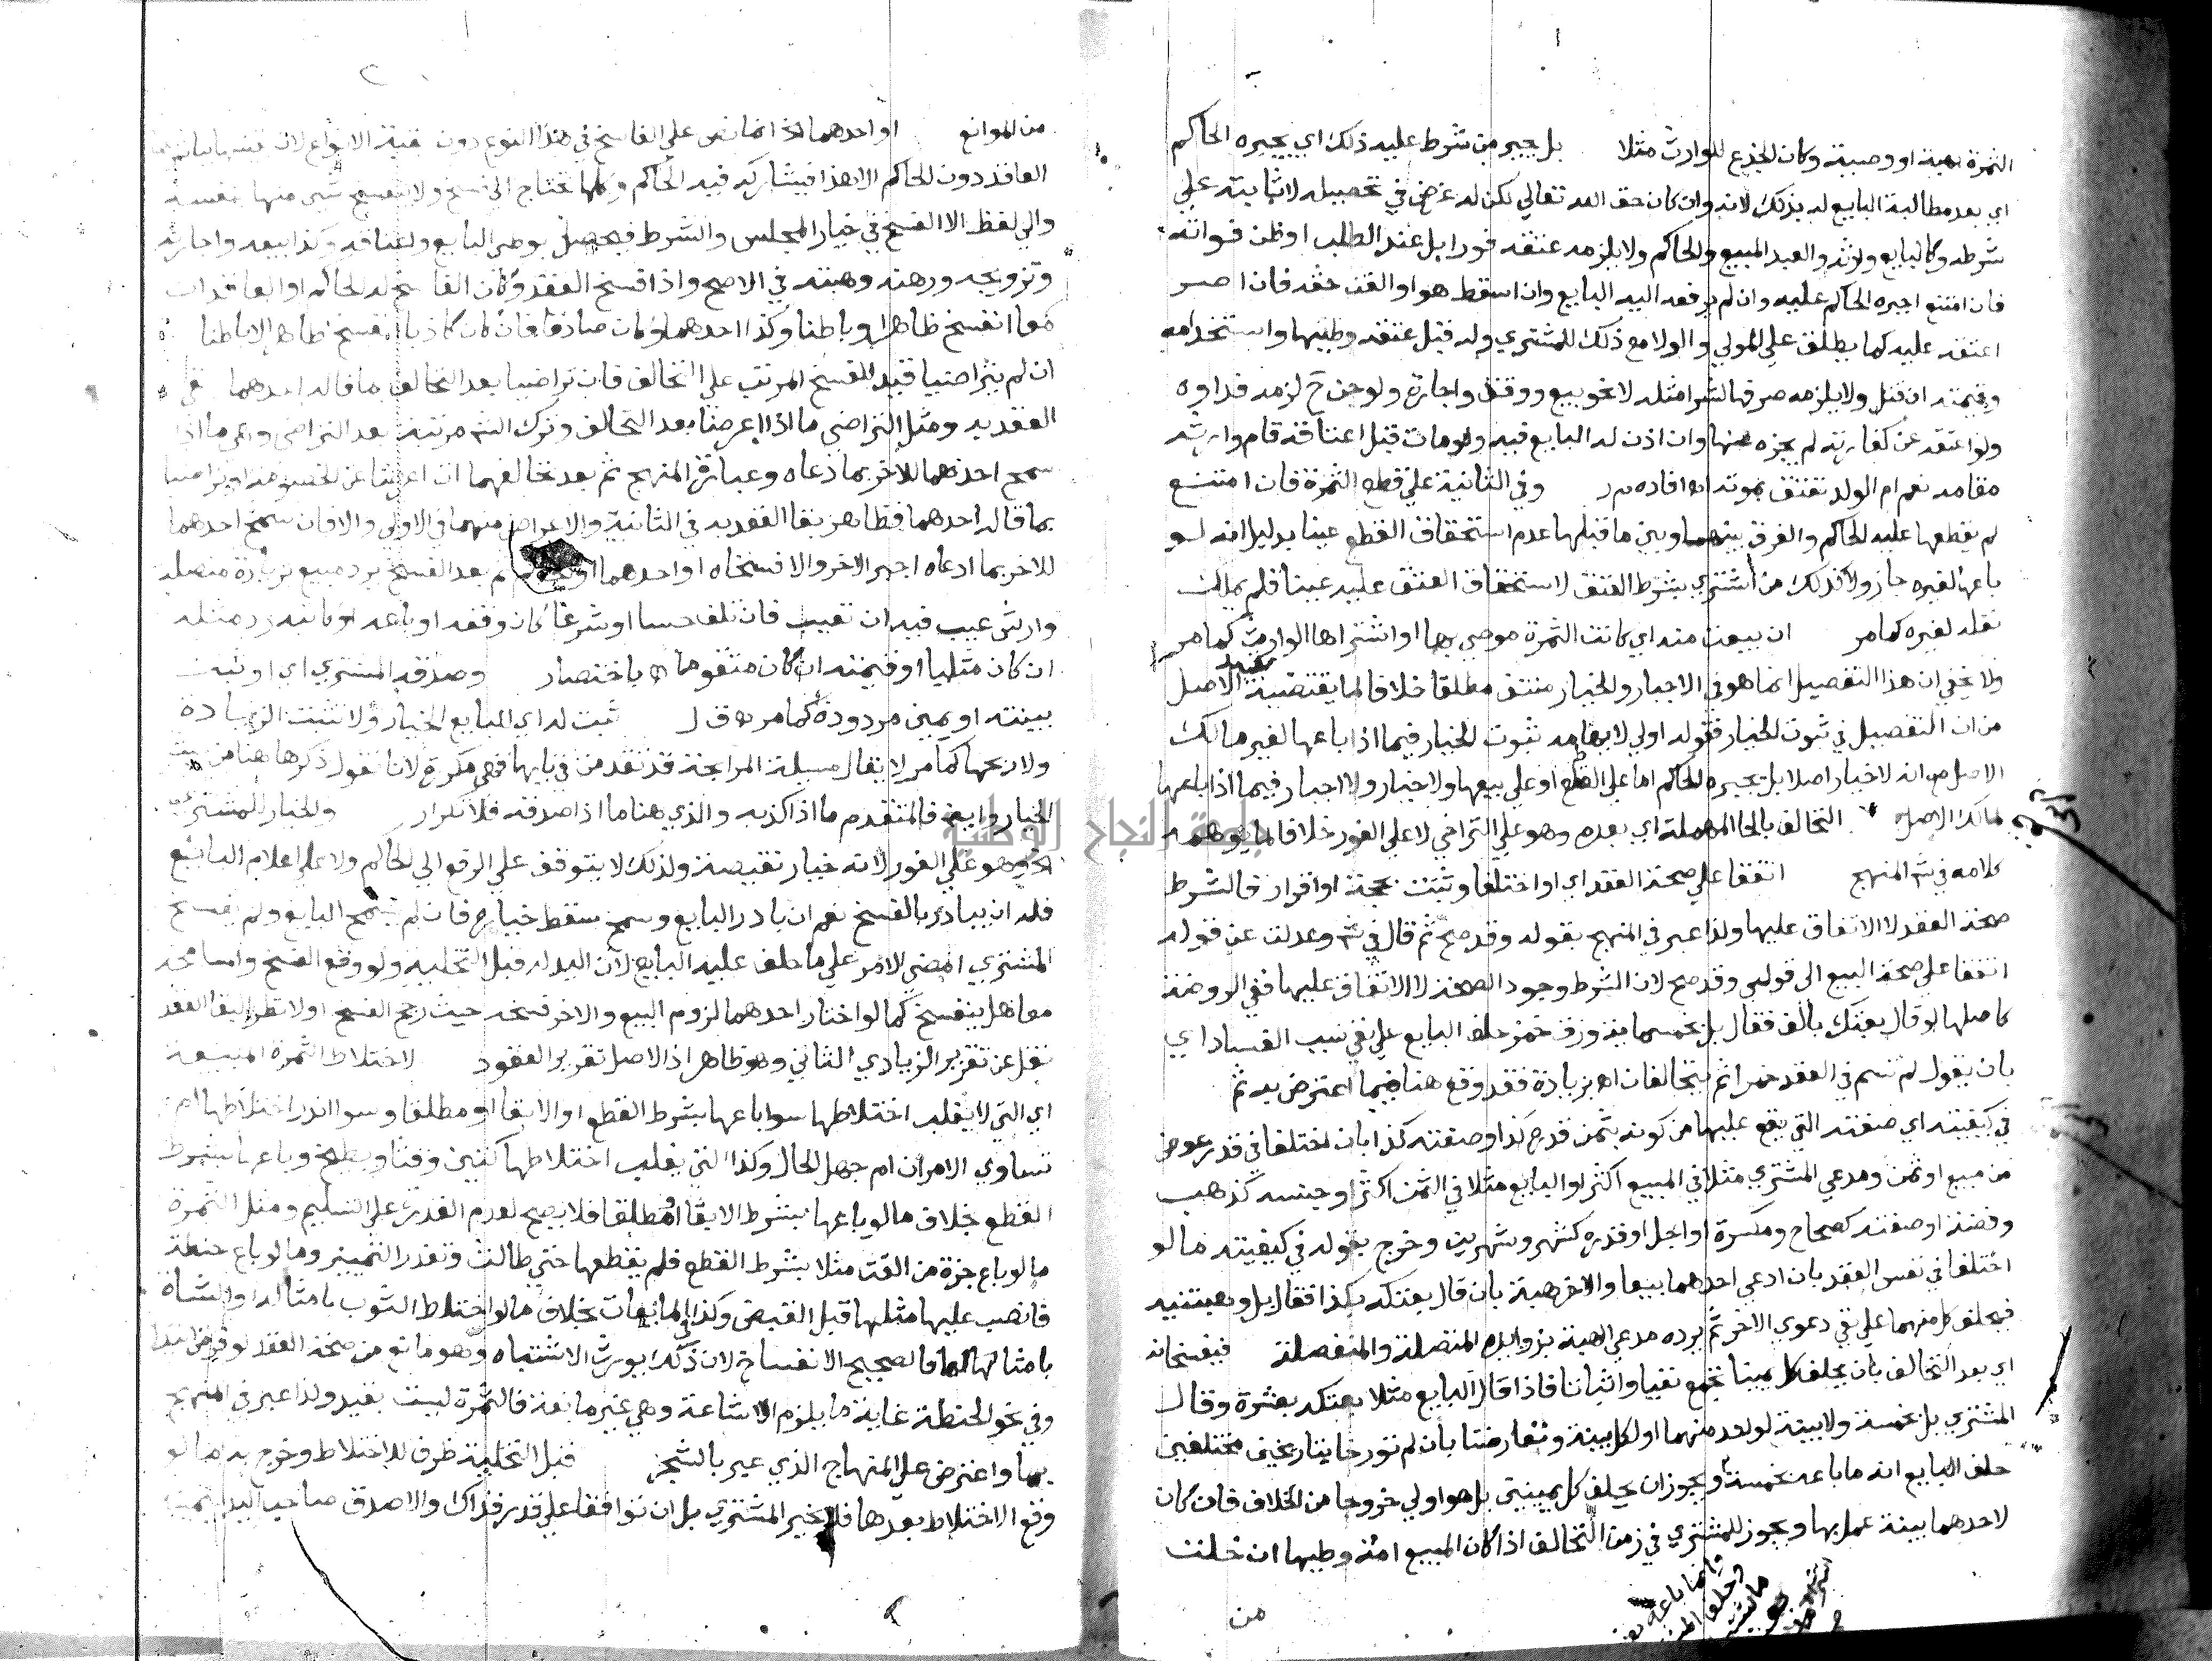 الثمرة بهبة او وصية وكان الجذع للوارث مثلا بل يجبر من شرط عليه ذلك اي يجبره الحاكم
اي بعد مطالبة البايع له بذلك لانه وان كان حق الله تعالي لكن له غرض في تحصيله لاثابته علي
شرطه وكالبايع وارثه والعبد المبيع والحاكم ولا يلزمه عتقه فورا بل عند الطلب او ظن فواته
فان امتنع اجبره الحاكم عليه وان لم يرفعه اليه البايع وان اسقط هو او القن حقه فان اصر
اعتقه عليه كما يطلق علي المولي والولا مع ذلك للمشتري وله قبل عتقه وطيها واستخدامه
وقيمته ان قتل ولا يلزمه صرفها لشرا مثله لا نحو بيع ووقف واجارة ولو جنى ح لزمه فداوه
ولو اعتقه عن كفارته لم يجزه عنها وان اذن له البايع فيه ولو مات قبل اعتاقه قام وارثه
مقامه نعم ام الولد تعتق بموته اه افاده م ر وفي الثانية علي قطع الثمرة فان امتنع
لم يقطعها عليه الحاكم والفرق بينهما وبين ما قبلها عدم استحقاق القطع عينا بدليل انه لو
باعها لغيره جاز ولا كذلك من اشتري بشرط العتق لاستحقاق العتق عليه عينا فلم يملك
نقله لغيره كما مر ان بيعت منه اي كانت الثمرة موصي بها او اشتراها الوارث كما مر
ولا يخفي ان هذا التفصيل انما هو في الاجبار والخيار منتف مطلقا خلافا لما يقتضيه الاصل
من ان التفصيل في ثبوت الخيار فقوله اولي لايهامه ثبوت الخيار فيما اذا باعها لغير مالك
الاصل مع انه لا خيار اصلا بل يجبره الحاكم اما علي القطع او علي بيعها ولا خيار ولا اجبار فيما اذا باعها
لمالك الاصل التحالف بالحا المهملة اي بعده وهو علي التراخي لا علي الفور خلافا لما يوهمه
كلامه في ش المنهج اتفقا علي صحة العقد اي او اختلفا وثبتت بحجة او اقرار فالشرط
صحة العقد لا الاتفاق عليها ولذا عبر في المنهج بقوله وقد صح ثم قال في ش وعدلت عن قوله
اتفقا علي صحة البيع الى قولي وقد صح لان الشرط وجود الصحة لا الاتفاق عليها ففي الروضة
كاصلها لو قال بعتك بالف فقال بل بخمسماية وزق خمر حلف البايع علي نفي سبب الفساد اي
بان يقول لم نسم في العقد خمرا ثم يتحالفان اه بزيادة فقد وقع هنا فيما اعترض به ثم
في كيفيته اي صفته التي يقع عليها من كونه بثمن قدره كذا وصفته كذا بان اختلفا في قدر عوض
من مبيع او ثمن ومدعي المشتري مثلا في المبيع اكثر او البايع مثلا في الثمن اكثر او جنسه كذهب
وفضة او صفته كصحاح ومكسرة او اجل او قدره كشهر وشهرين وخرج بقوله في كيفيته ما لو
اختلفا في نفس العقد بان ادعي احدهما بيعا والاخر هبة بان قال بعتكه بكذا فقال بل وهبتنيه
فيحلف كل منهما علي نفي دعوي الاخر ثم يرده مدعي الهبة بزوايده المتصلة والمنفصلة فيفسخانه
اي بعد التحالف بان يحلف كل يمينا تجمع نفيا واثباتا فاذا قال البايع مثلا بعتكه بعشرة وقال
المشتري بل بخمسة ولا بينة لواحد منهما او لكل بينة وتعارضتا بان لم تورخا بتاريخين مختلفين
حلف البايع انه ما باعه بخمسة ويجوز ان يحلف كل يمينين بل هو اولي خروجا من الخلاف فان كان
لاحدهما بينة عمل بها ويجوز للمشتري في زمن التحالف اذا كان المبيع امة وطيها ان خلت
وانما باعه
من
من الموانع او احدهما انما نص علي الفاسخ في هذا النوع دون بقية الانواع لان
العاقد دون الحاكم الا هذا فيشاركه فيه الحاكم وكلها تحتاج الي فسخ ولا ينفسخ شي منها بنفسه
والي لفظ الا الفسخ في خيار المجلس والشرط فيحصل بوطي البايع واعتاقه وكذا بيعه واجارته
وتزويجه ورهنه وهبته في الاصح واذا فسخ العقد وكان الفاسخ له الحاكم او العاقدان
معا انفسخ ظاهرا وباطنا وكذا احدهما وكان صادقا فان كان كاذبا انفسخ ظاهرا لا باطنا
ان لم يتراضيا قيد للفسخ المرتب علي التحالف فان تراضيا بعد التحالف بما قاله احدهما بقي
العقد به ومثل التراضي ما اذا اعرضا بعد التحالف وترك الش مرتبة بعد التراضي وهي ما اذا
سمح احدهما للاخر بما ادعاه وعبارة المنهج ثم بعد تحالفهما ان اعرضا عن الخصومة او تراضيا
بما قاله احدهما فظاهر بقا العقد به في الثانية والاعراض عنهما في الاولي والا فان سمح احدهما
للاخر بما ادعاه اجبر الاخر والا فسخاه او احدهما او الحاكم ثم بعد الفسخ يرد مبيع بزيادة متصلة
وارش عيب فيه ان تعيب فان تلف حسا او شرعا كان وقفه او باعه او كاتبه رد مثله
ان كان مثليا او قيمته ان كان متقوما اه باختصار وصدقه المشتري اي او ثبت
ببينته او يمين مردودة كما مر ه ق ل ثبت له اي البايع الخيار ولا تثبت الزيادة
ولا ربحها كما مر لا يقال مسيلة المرابحة قد تقدمن في بابها فهي مكررة لانا نقول ذكرها هنا من حيث
الخيار وايضا فالمتقدم ما اذا كذبه والذي هنا ما اذا صدقه فلا تكرار والخيار للمشتري
الخ وهو علي الفور لانه خيار نقيصة ولذلك لا يتوقف علي الرفع الي الحاكم ولا علي اعلام البايع
فله ان يبادر بالفسخ نعم ان بادر البايع وسمح سقط خياره فان لم يسمح البايع ولم يفسخ
المشتري امضي الامر علي ما حلف عليه البايع لان اليد له قبل التخلية ولو وقع الفسخ والمسامحة
معا هل ينفسخ كما لو اختار احدهما لزوم البيع والاخر فسخه حيث رجح الفسخ او لا نظرا لبقا العقد
نقل عن تقرير الزيادي الثاني وهو ظاهر اذ الاصل تقرير العقود لاختلاط الثمرة المبيعة
اي التي لا يغلب اختلاطها سوا باعها بشرط القطع او الابقا او مطلقا وسوا ندر اختلاطها ام
تساوي الامران ام جهل الحال وكذا التي يغلب اختلاطها كتين وقثا وبطيخ وباعها بشرط
القطع بخلاف ما لو باعها بشرط الابقا او مطلقا فلا يصح لعدم القدرة علي التسليم ومثل الثمرة
ما لو باع جزة من القت مثلا بشرط القطع فلم يقطعها حتي طالت وتعذر التمييز وما لو باع حنطة
فانصب عليها مثلها قبل القبض وكذا في المايعات بخلاف ما لو اختلط الثوب بامثاله او الشاة
بامثالها فالصحيح الانفساخ لان ذلك يورث الاشتباه وهو مانع من صحة العقد لو فرض ابتدا
وفي نحو الحنطة غاية ما يلزم الاشاعة وهي غير مانعة فالثمرة ليست بقيد ولذا عبر في المنهج
بها واعترض علي المنهاج الذي عبر بالشجر قبل التخلية ظرف للاختلاط وخرج به ما لو
وقع الاختلاط بعدها فلا يخير المشتري بل ان توافقا علي قدر فذاك والا صدق صاحب اليد بيمينه
جامعة النجاح الوطنية